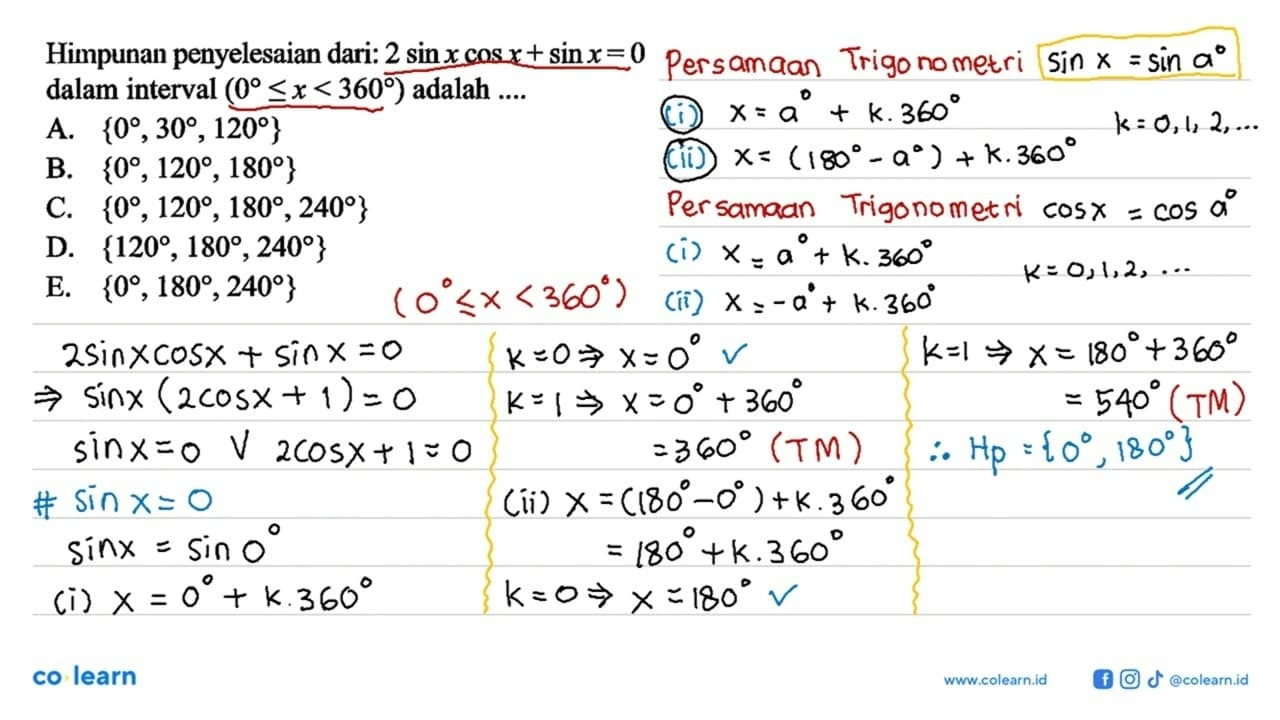 Himpunan penyelesaian dari: 2 sin x cos x + sin x = 0
dalam interval (0° ≤ x < 360°) adalah ....
A. {0°, 30°, 120°}
B. {0°, 120°, 180°}
C. {0°, 120°, 180°, 240°}
D. {120°, 180°, 240°}
E. {0°, 180°, 240°}
(0° ≤ x < 360°)
Persamaan Trigonometri sin x = sin a°
(i) x = a° + k. 360°
k = 0, 1, 2, ...
(ii) x = (180° - a°) + k. 360°
Persamaan Trigonometri cos x = cos a°
(i) x = a° + k. 360°
k = 0, 1, 2, ...
(ii) x = -a° + k. 360°
2 sin x cos x + sin x = 0
⇒ sin x (2 cos x + 1) = 0
sin x = 0 V 2 cos x + 1 = 0
# sin x = 0
sin x = sin 0°
(i) x = 0° + k. 360°
k = 0 ⇒ x = 0° ✓
k = 1 ⇒ x = 0° + 360°
= 360° (TM)
(ii) x = (180° - 0°) + k. 360°
= 180° + k. 360°
k = 0 ⇒ x = 180° ✓
k = 1 ⇒ x = 180° + 360°
= 540° (TM)
∴ Hp = {0°, 180°}
co·learn
www.colearn.id
@colearn.id